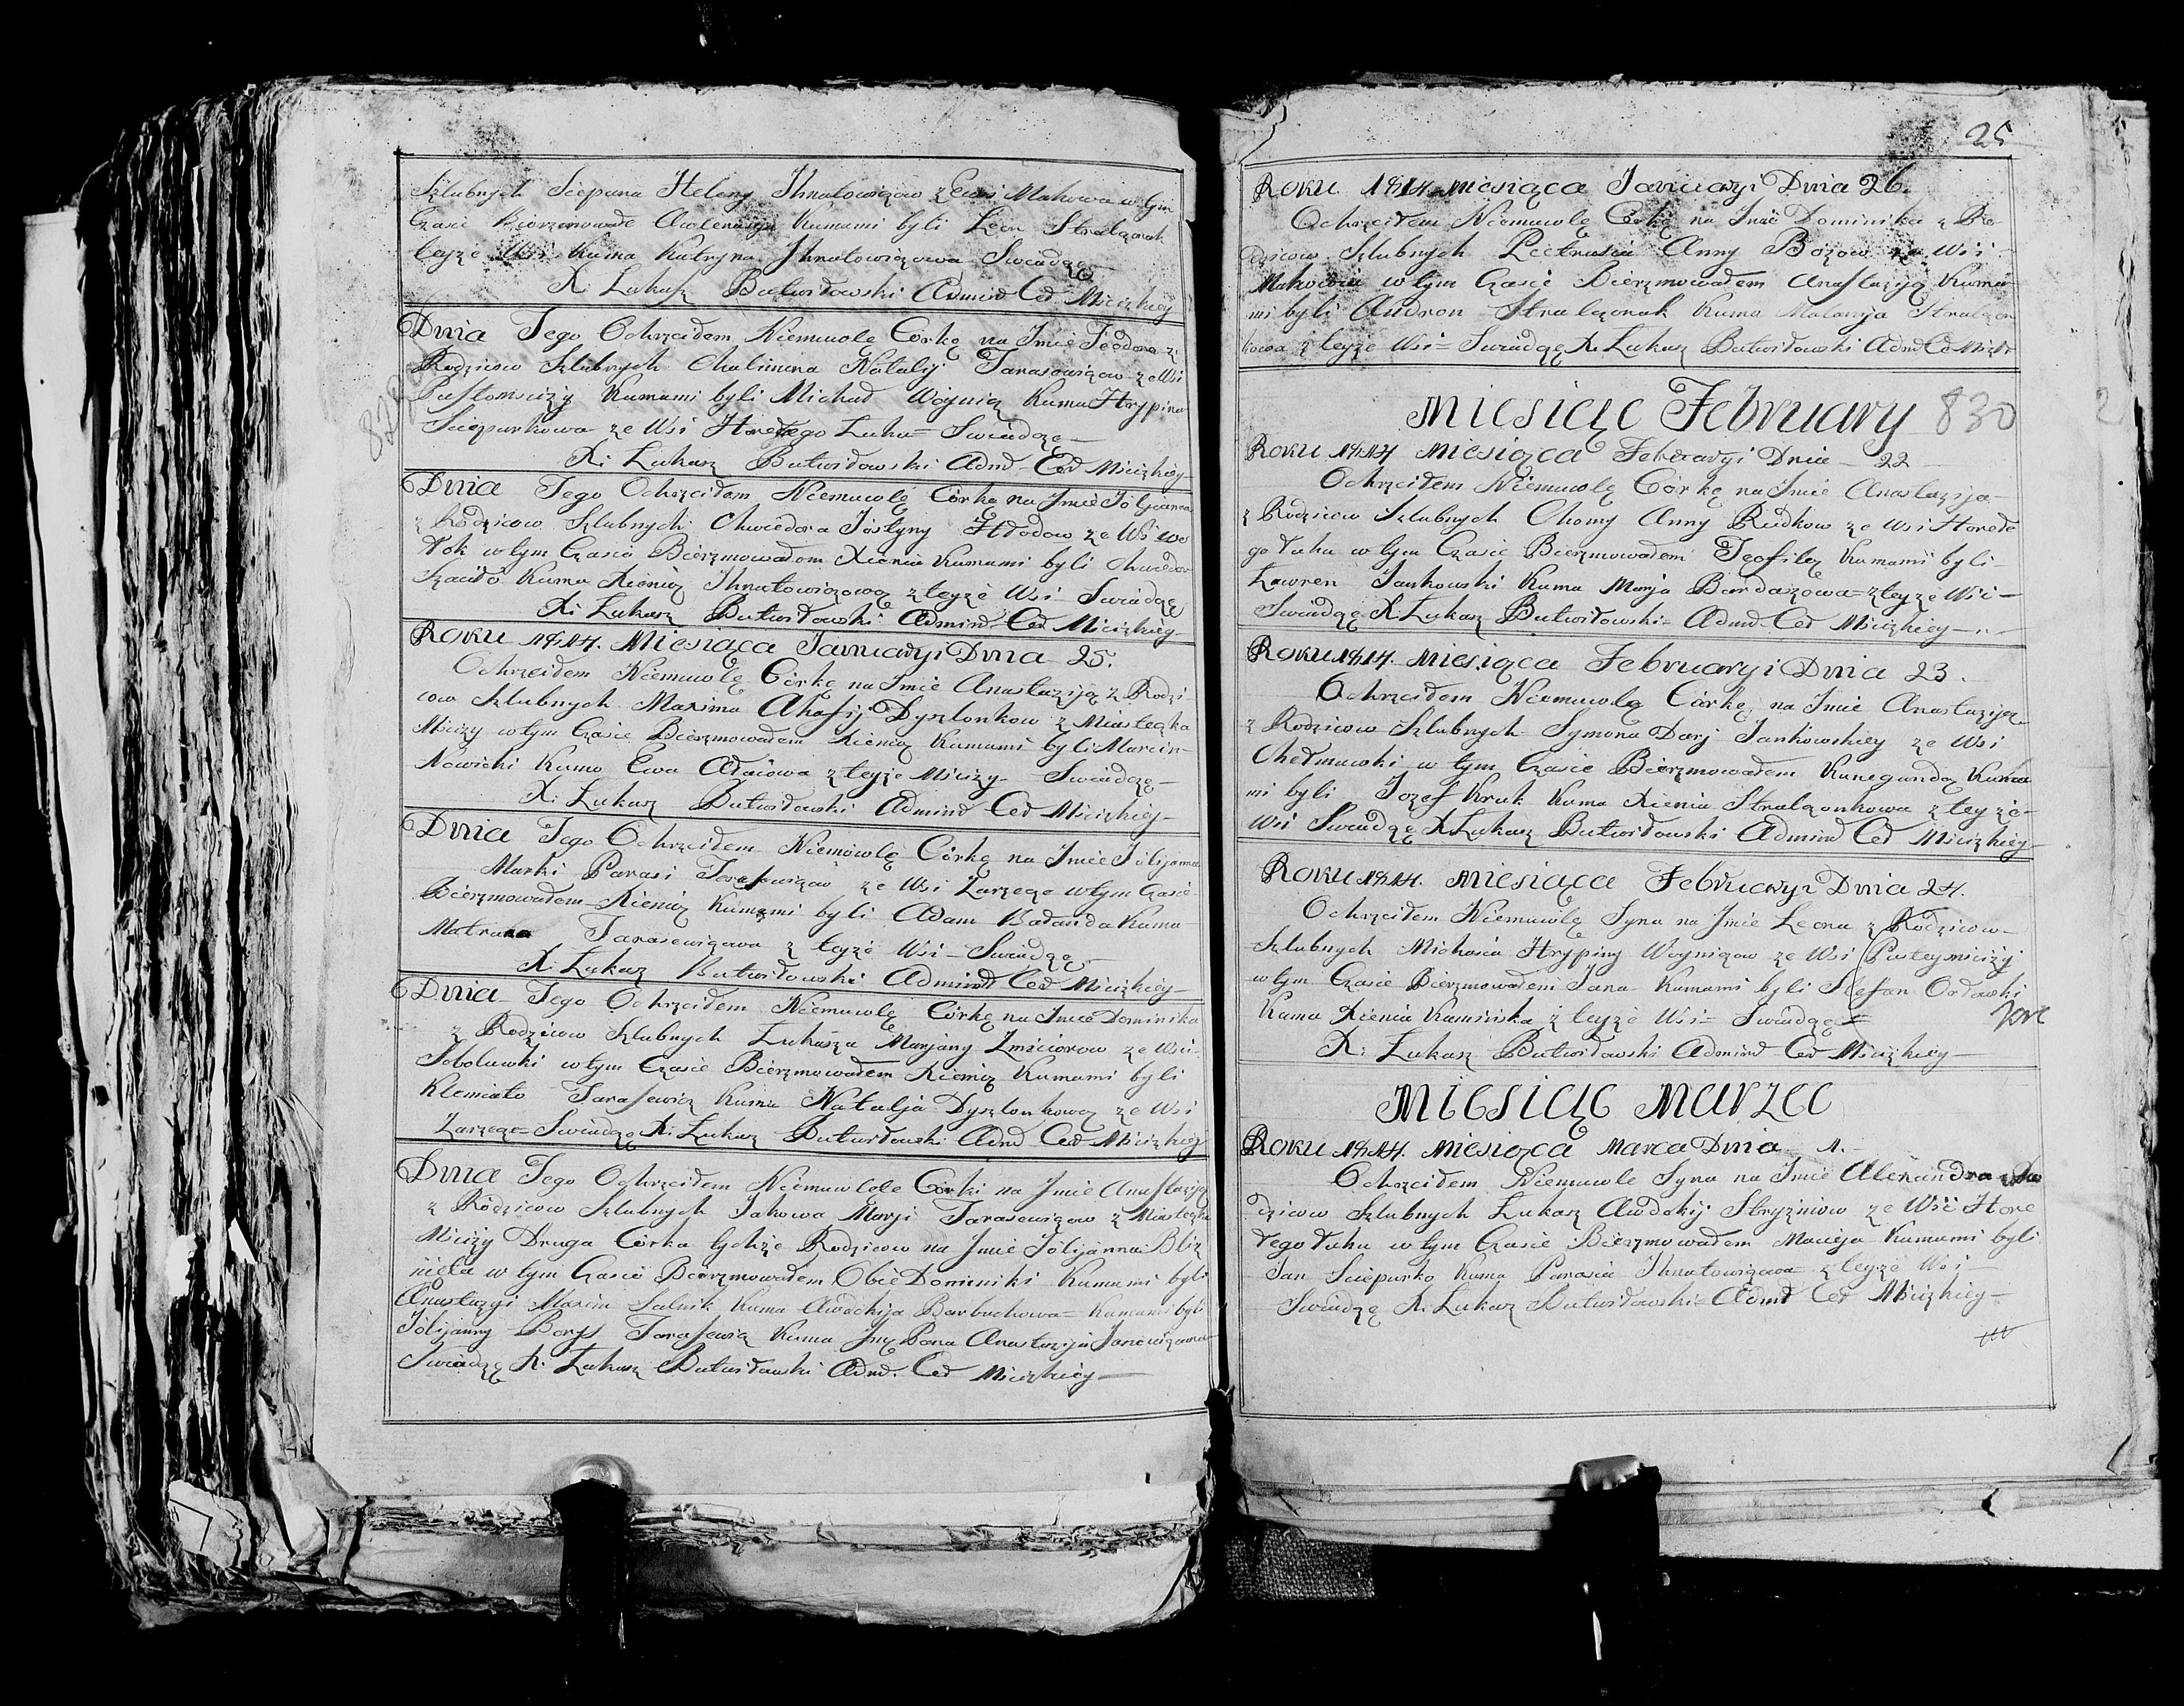 Szlubnych Sciepana Heleny Ihnatowiczow ze Wsi Makowa w tym
Czasie Bierzmowałe Awlenarya Kumami byli Leon Stralczonak
teyże Wsi Kuma Katryna Ihnatowiczowa Swiadczę
X: Łukasz Butwiłowski Admind Ced Mścizkiey
Dnia Tego Ochrzciłem Niemuwlę Corkę na Jmie Teodora z
Rodzicow Szlubnych Chalimona Natalij Tarasowiczow ze Wsi
Pustomscizy Kumami byli Michał Woynicz Kuma Hrypina
Sciepurkowa ze Wsi Horełego Luhu = Swiadczę
X: Łukasz Butwiłowski Admd Ced Mścizkiey
829
Dnia Tego Ochrzciłem Niemuwlę Córkę na Jmie Joljanna
z Rodzicow Szlubnych Chwiedora Jostyny Hłodow ze Wsi Wo
łok w tym Czasie Bierzmowałem Xienia Kumami byli Chwiedor
Szaiło Kuma Xienia Ihnatowiczowa z teyże Wsi Swiadczę
X: Łukasz Butwiłowski Admind Ced Mścizkiey
Roku 1814. Miesiąca Januaryi Dnia 25.
Ochrzciłem Niemuwlę Córkę na Jmie Anastazyją z Rodzi
cow Szlubnych Maxima Ahafij Dyszlonkow z Miasteczka
Mścizy w tym Czasie Bierzmowałem Xienią Kumami byli Marcin
Nowicki Kuma Ewa z teyże Mścizy Swiadczę
X: Łukasz Butwiłowski Admind Ced Mścizkiey
Dnia Tego Ochrzciłem Niemowlę Córkę na Jmie Jolijanna
Marki Parasi Tarasewiczow ze Wsi Zarzecze w tym Czasie
Bierzmowałem Xienią Kumami byli Adam Bałanda Kuma
Tarasewiczowa z teyże Wsi Swiadczę
X: Łukasz Butwiłowski Admind Ced Mścizkiey
Dnia Tego Ochrzciłem Niemuwlę Córkę na Jmie Dominika
z Rodzicow Szlubnych Łukasza Marjany Zmiciorow ze Wsi
Soboluwki w tym Czasie Bierzmowałem Xienią Kumami byli
Klemiato Tarasewicz Kuma Natalja Dyszlonkowa ze Wsi
Zarzecze = Swiadczę X: Łukasz Butwiłowski Admd Ced Mścizkiey
Dnia Tego Ochrzciłem Niemuwlęle Córki na Jmie Anastazyją
z Rodzicow Szlubnych Jakowa Marji Tarasewiczow z Miasteczka
Mścizy Druga Córka tychże Rodzicow na Jmie Jolijanna Bliz
nięta w tym Czasie Bierzmowałem Obie Dominiki Kumami byli
Anastazyi Maxim Salnik Kuma Awdokija Barbuchowa = Kumami byli
Jolijanny Borys Tarasewicz Kuma Jmę Pana Anastazija
Swiadczę X: Łukasz Butwiłowski Admd. Ced Mścizkiey
25
Roku 1814. Miesiąca Januaryi Dnia 26.
Ochrzciłem Niemuwlę Córkę na Jmie Dominika z Ro
dzicow Szlubnych Pietrusia Anny Bozow ze Wsi
Makowia w tym Czasie Bierzmowałem Anastazyją Kuma
mi byli Audron Stralczonak Kuma Malanja Stralczon
kowa z teyże Wsi = Swiadczę X: Łukasz Butwiłowski Admd Ced Mizk
Miesiąc February 830
Roku 1814 Miesiąca Februaryi Dnia 22
Ochrzciłem Niemuwlę Córkę na Jmie Anastazija
z Rodzicow Szlubnych Chomy Anny Rudkow ze Wsi Horełe
go Łuhu w tym Czasie Bierzmowałem Teofilę Kumami byli
Ławren Jankowski Kuma Marja Bardaszowa = z teyże Wsi
Swiadczę X. Łukasz Butwiłowski = Admd Ced Mścizkiey
Roku 1814. Miesiąca Februaryi Dnia 23.
Ochrzciłem Niemuwlę Córkę na Jmie Anastazyją
z Rodzicow Szlubnych Symona Darj Jankowskiey ze Wsi
Chełmowki w tym Czasie Bierzmowałem Kunegundą Kuma
mi byli Jozef Kruk Kuma Xienia Stralczonkowa z teyże
Wsi Swiadczę X Łukasz Butwiłowski Admind Ced Mścizkiey
Roku 1814. Miesiąca Februaryi Dnia 24.
Ochrzciłem Niemuwlę Syna na Jmie Leona z Rodzicow
Szlubnych Michasia Hrypiny Woyniczow ze Wsi Pusteymścizy
w tym Czasie Bierzmowałem Jana Kumami byli Stefan Orłowski
Kuma Xienia Kamińska z teyże Wsi = Swiadczę =
X: Łukasz Butwiłowski Admind Ced Mścizkiey
Miesiąc Marzec
Roku 1814. Miesiąca Marca Dnia 1.
Ochrzciłem Niemuwle Syna na Jmie Alexandra z Ro
dzicow Szlubnych Łukasz Awdokij Stryzniow ze Wsi Hore
łego Łuhu w tym Czasie Bierzmowałem Macieja Kumami byli
Jan Sciepurko Kuma Parasia Ihnatowiczowa = z teyże Wsi
Swiadczę X. Łukasz Butwiłowski = Admd Ced Mścizkiey